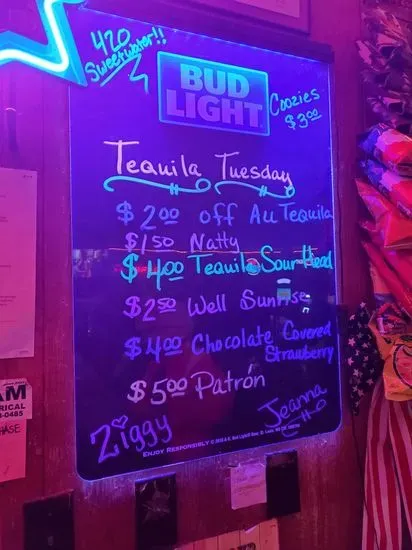 420
Sweetwater!!
BUD
LIGHT
Coozies
$3.00
Tequila Tuesday
$2.00 off All Tequila
$1.50 Natty
$4.00 Tequila Sour Head
$2.50 Well Sunrise
$4.00 Chocolate Covered
Strawberry
$5.00 Patrón
Ziggy
Jeanna
ENJOY RESPONSIBLY
AM
RICAL
-0485
HASE